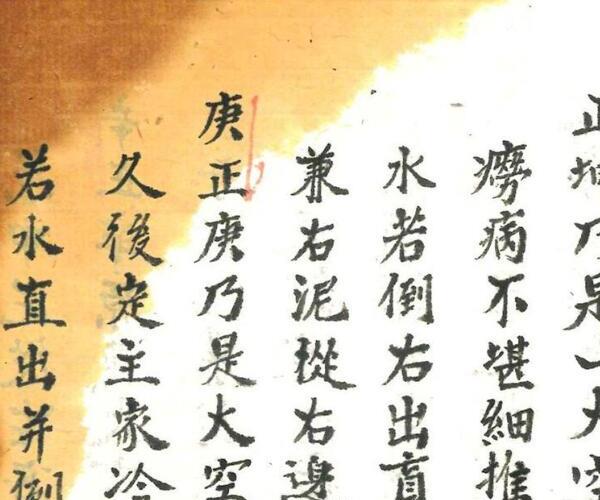 正坤乃是一大空
癆病不堪細推
水若倒右出盲
兼右泥從右邊
庚正庚乃是大空
久後定主家冷
若水直出并倒